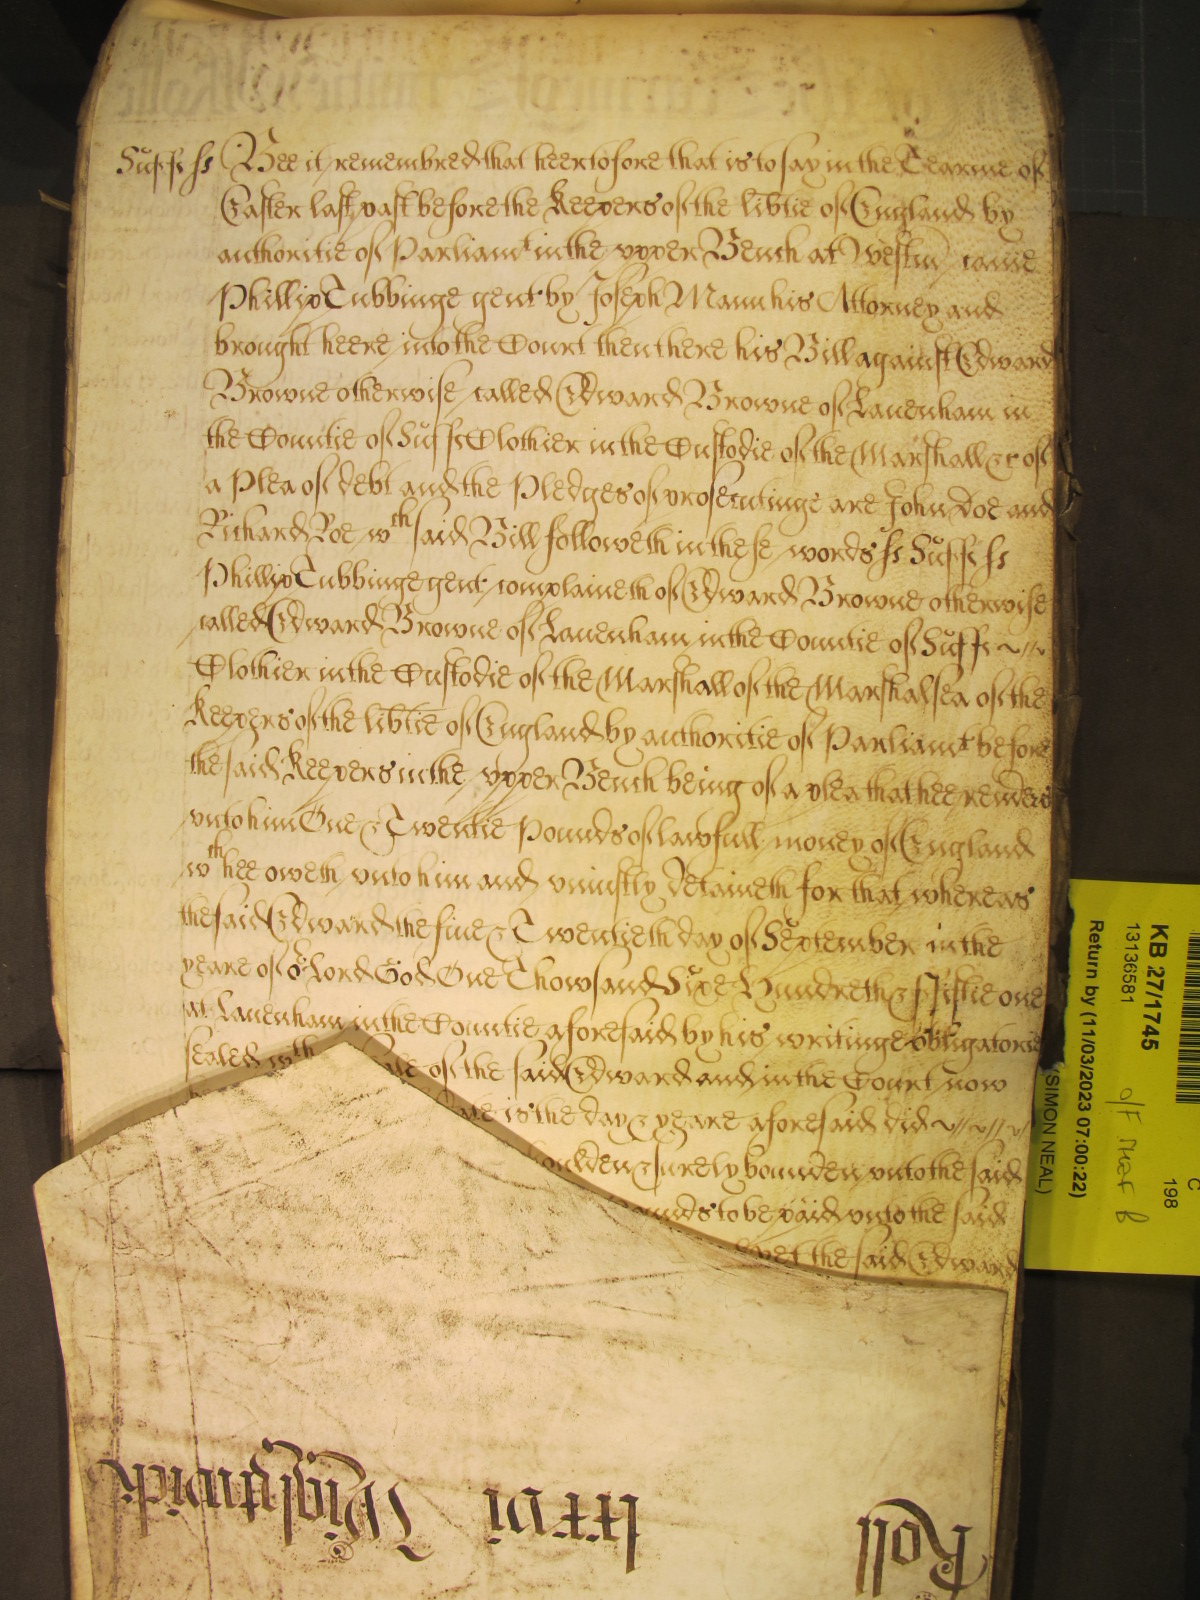 Suff ss Bee it remembred that heertofore that is to say in the Tearme of
Easter last past before the Keepers of the lib̃tie of England by
authoritie of Parliamt in the vpper Bench at Westm̃ came
Phillip Tubbinge gent by Joseph Mann his Attorney and
brought heere into the Court then there his Bill against Edward
Browne otherwise called Edward Browne of Lauenham in
the Countie of Suff Clothier in the Custodie of the Marshall &c of
a Plea of debt and the Pledges of prosecutinge are John Doe and
Richard Roe wch said Bill followeth in these words ss Suff ss
Phillip Tubbinge gent complaineth of Edward Browne otherwise
called Edward Browne of Lauenham in the Countie of Suff
Clothier in the Custodie of the Marshall of the Marshalsea of the
Keepers of the lib̃tie of England by authoritie of Parliamt before
the said Keepers in the vpper Bench being of a plea that hee renders
vnto him One & Twentie Pounds of lawfull money of England
wch hee oweth vnto him and vniustly detaineth for that whereas
the said Edward the fiue & Twentieth day of September in the
yeare of or Lord God One Thowsand Sixe Hundreth & fiftie one
at Lauenham in the Countie aforesaid by his writinge obligatorie
sealed wth of the said Edward and in the Court now
is the day & yeare aforesaid did
houlden & surely bounden vnto the said
to be paid vnto the said
yet the said Edward
Roll
lxxvi
Wightwick
KB 27/1745
13136581
Return by (11/03/2023 07:00:22)
(SIMON NEAL)
C
198